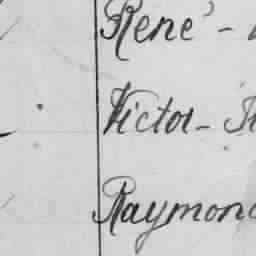 René -
Victor -
Raymond